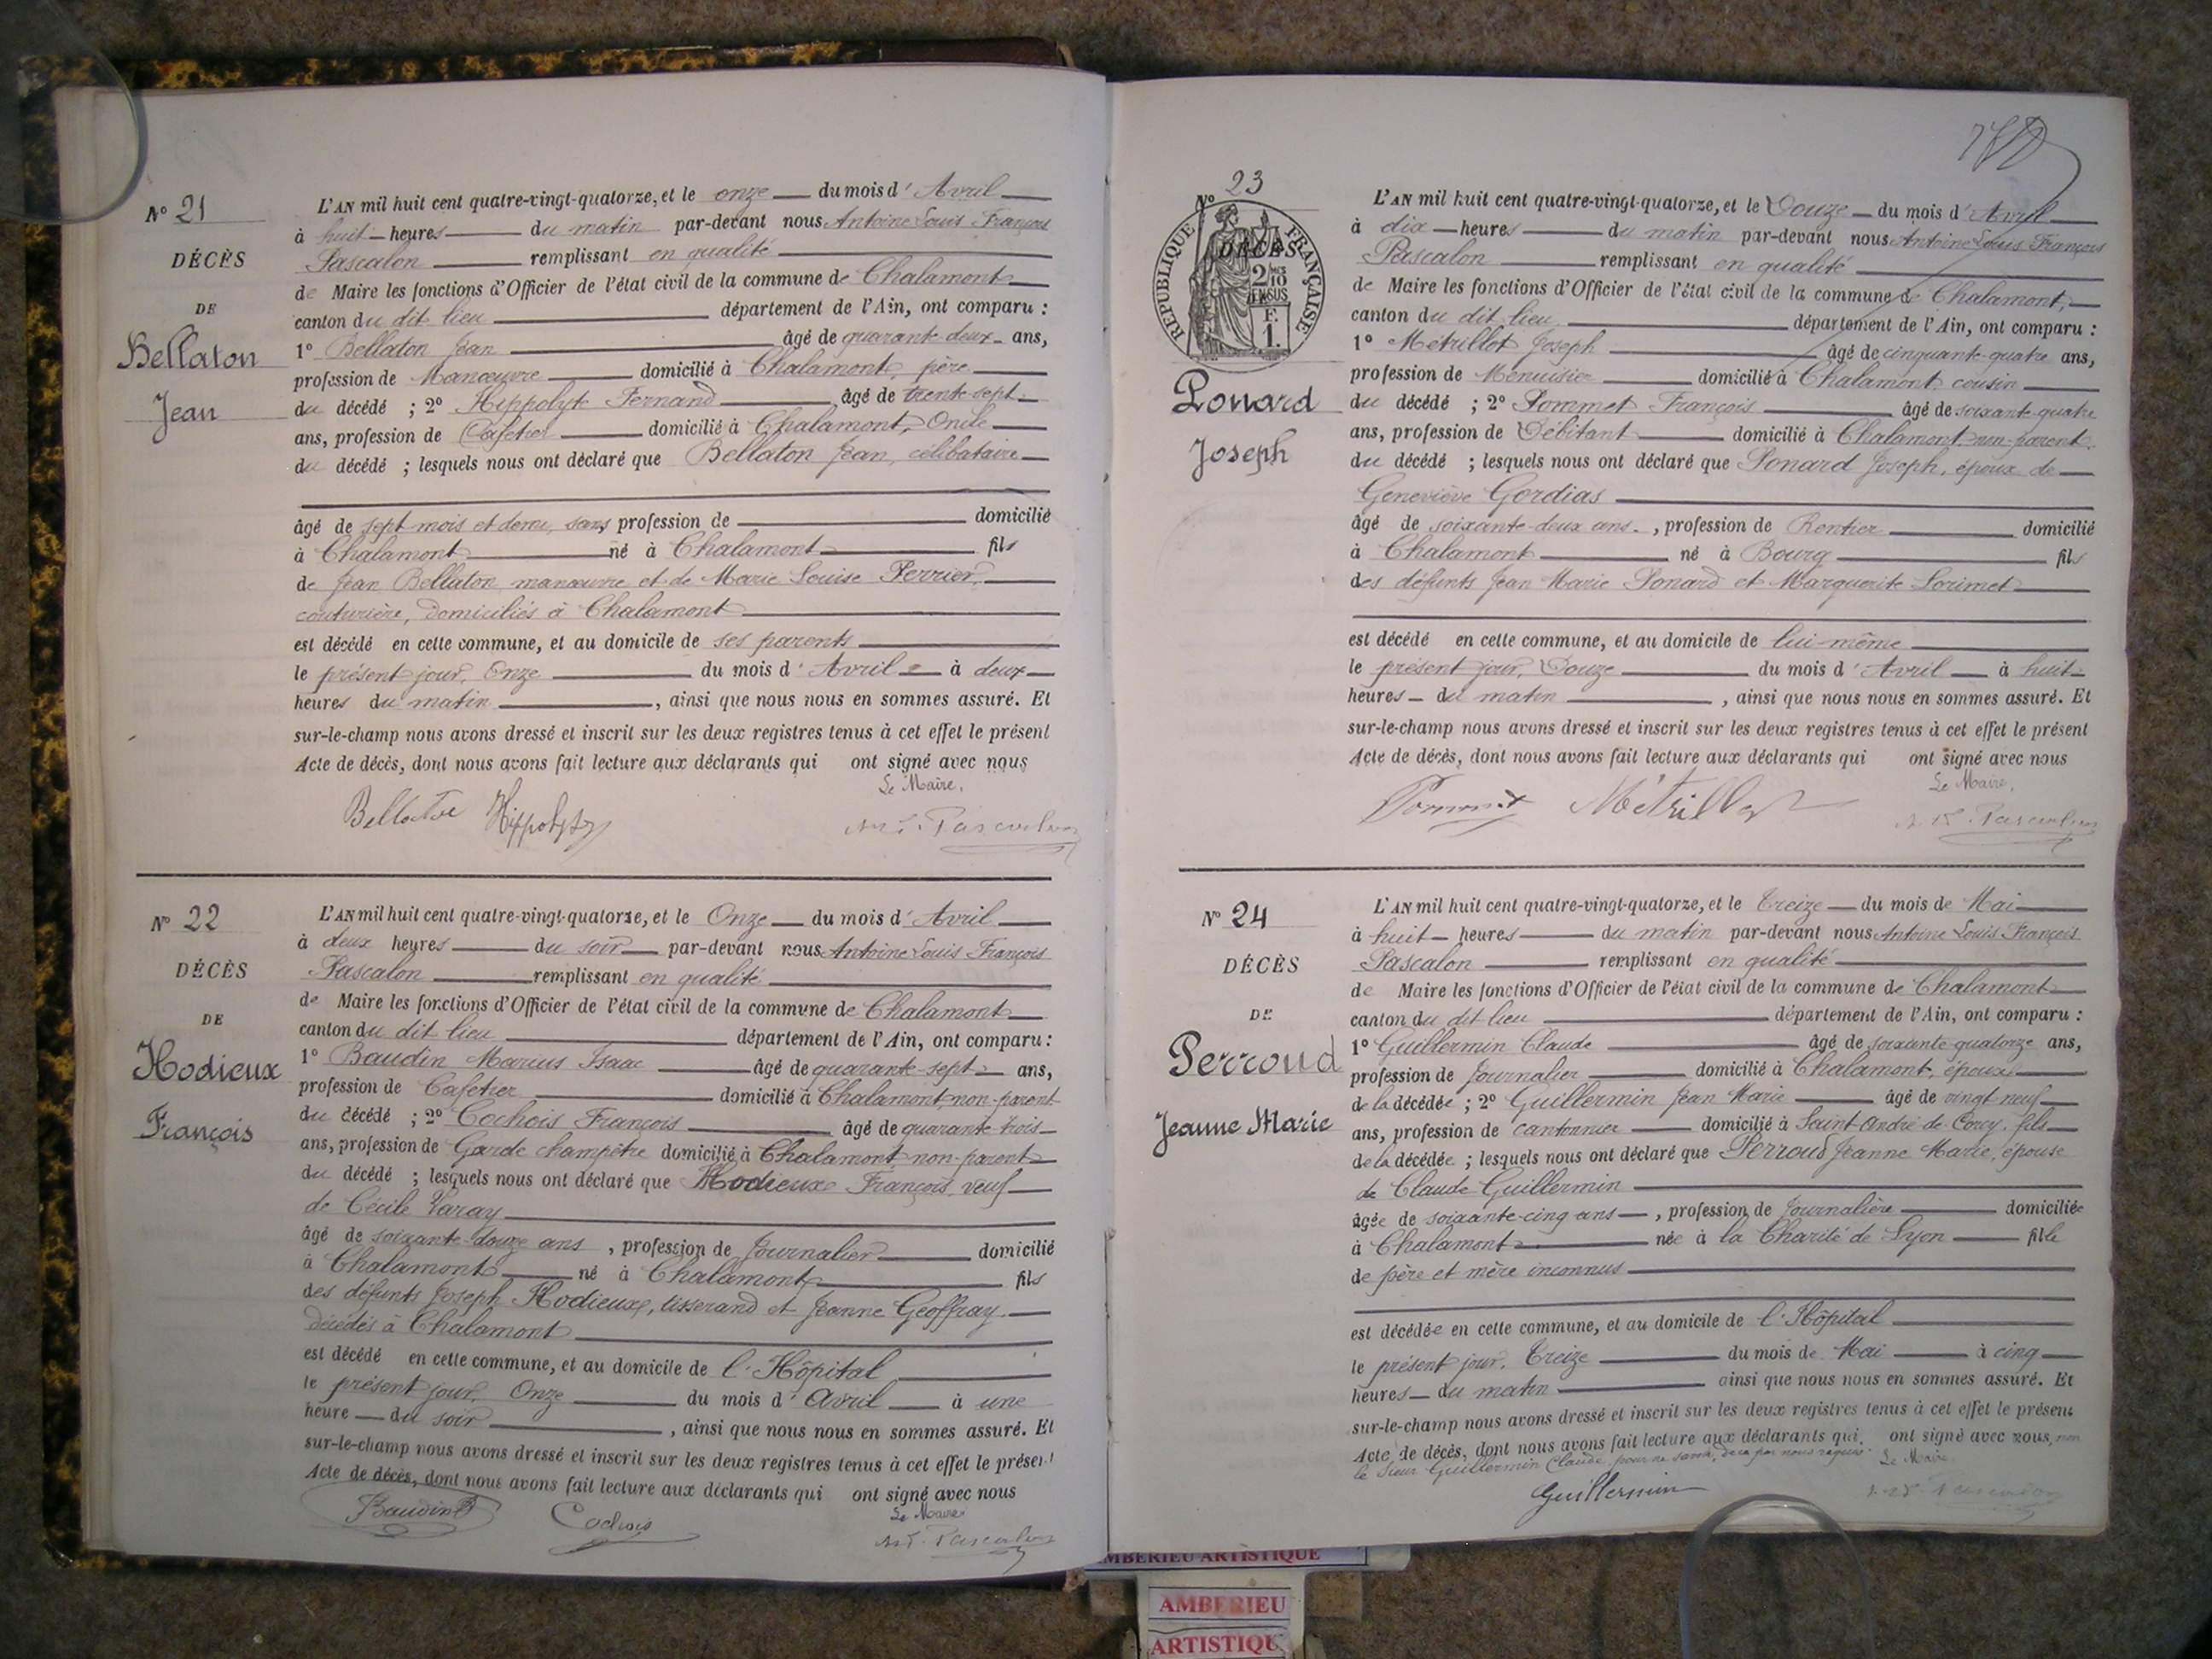 N° 21
DÉCÈS
DE
Bellaton
Jean
L'AN mil huit cent quatre-vingt-quatorze, et le onze du mois d' Avril
à huit heures du matin par-devant nous Antoine Louis François
Pascalon remplissant en qualité
de Maire les fonctions d'Officier de l'état civil de la commune de Chalamont
canton du dit lieu département de l'Ain, ont comparu :
1° Bellaton Jean âgé de quarante-deux ans,
profession de Manœuvre domicilié à Chalamont, père
du décédé ; 2° Hippolyt Fernand âgé de trente-sept
ans, profession de Cafetier domicilié à Chalamont, Oncle
du décédé ; lesquels nous ont déclaré que Bellaton Jean, célibataire
âgé de sept mois et demi, sans profession de domicilié
à Chalamont né à Chalamont fils
de Jean Bellaton manœuvre et de Marie Louise Perrier,
couturière, domiciliés à Chalamont
est décédé en cette commune, et au domicile de ses parents
le présent jour, Onze du mois d' Avril à deux
heures du matin, ainsi que nous nous en sommes assuré. Et
sur-le-champ nous avons dressé et inscrit sur les deux registres tenus à cet effet le présent
Acte de décès, dont nous avons fait lecture aux déclarants qui ont signé avec nous
Le Maire,
Bellaton Hippolyt Pascalon
N° 22
DÉCÈS
DE
Hodieux
François
L'AN mil huit cent quatre-vingt-quatorze, et le Onze du mois d' Avril
à deux heures du soir par-devant nous Antoine Louis François
Pascalon remplissant en qualité
de Maire les fonctions d'Officier de l'état civil de la commune de Chalamont
canton du dit lieu département de l'Ain, ont comparu :
1° Baudin Marius Isaac âgé de quarante-sept ans,
profession de Cafetier domicilié à Chalamont, non-parent
du décédé ; 2° Cochois François âgé de quarante-trois
ans, profession de Garde champêtre domicilié à Chalamont non-parent
du décédé ; lesquels nous ont déclaré que Hodieux François, veuf
de Cécile Varay
âgé de soixante-douze ans, profession de Journalier domicilié
à Chalamont né à Chalamont fils
des défunts Joseph Hodieux, tisserand et Jeanne Geoffray
décédés à Chalamont
est décédé en cette commune, et au domicile de l'Hôpital
le présent jour, Onze du mois d' Avril à une
heure du soir, ainsi que nous nous en sommes assuré. Et
sur-le-champ nous avons dressé et inscrit sur les deux registres tenus à cet effet le présent
Acte de décès, dont nous avons fait lecture aux déclarants qui ont signé avec nous
Le Maire
Baudin Cochois Pascalon
N° 23
RÉPUBLIQUE FRANÇAISE
DÉCÈS
2/10 EN SUS
F. 1.
Ponard
Joseph
L'AN mil huit cent quatre-vingt-quatorze, et le Douze du mois d' Avril
à dix heures du matin par-devant nous Antoine Louis François
Pascalon remplissant en qualité
de Maire les fonctions d'Officier de l'état civil de la commune de Chalamont,
canton du dit lieu département de l'Ain, ont comparu :
1° Métrillot Joseph âgé de cinquante-quatre ans,
profession de Menuisier domicilié à Chalamont, cousin
du décédé ; 2° Pommet François âgé de soixante-quatre
ans, profession de Débitant domicilié à Chalamont, non-parent
du décédé ; lesquels nous ont déclaré que Ponard Joseph, époux de
Geneviève Gordias
âgé de soixante-deux ans, profession de Rentier domicilié
à Chalamont né à Bourg fils
des défunts Jean Marie Ponard et Marguerite Lorimet
est décédé en cette commune, et au domicile de lui-même
le présent jour, Douze du mois d' Avril à huit
heures du matin, ainsi que nous nous en sommes assuré. Et
sur-le-champ nous avons dressé et inscrit sur les deux registres tenus à cet effet le présent
Acte de décès, dont nous avons fait lecture aux déclarants qui ont signé avec nous
Le Maire,
Pommet Métrillot Pascalon
N° 24
DÉCÈS
DE
Perroud
Jeanne Marie
L'AN mil huit cent quatre-vingt-quatorze, et le Treize du mois de Mai
à huit heures du matin par-devant nous Antoine Louis François
Pascalon remplissant en qualité
de Maire les fonctions d'Officier de l'état civil de la commune de Chalamont
canton du dit lieu département de l'Ain, ont comparu :
1° Guillermin Claude âgé de soixante quatorze ans,
profession de Journalier domicilié à Chalamont, époux
de la décédée ; 2° Guillermin Jean Marie âgé de vingt neuf
ans, profession de cantonnier domicilié à Saint-André-de-Corcy, fils
de la décédée ; lesquels nous ont déclaré que Perroud Jeanne Marie, épouse
de Claude Guillermin
âgée de soixante-cinq ans, profession de Journalière domiciliée
à Chalamont née à la Charité de Lyon fille
de père et mère inconnus
est décédée en cette commune, et au domicile de l'Hôpital
le présent jour, Treize du mois de Mai à cinq
heures du matin ainsi que nous nous en sommes assuré. Et
sur-le-champ nous avons dressé et inscrit sur les deux registres tenus à cet effet le présent
Acte de décès, dont nous avons fait lecture aux déclarants qui ont signé avec nous, non
le sieur Guillermin Claude pour ne savoir, de ce par nous requis. Le Maire
Guillermin Pascalon
AMBERIEU ARTISTIQUE
AMBERIEU
ARTISTIQUE